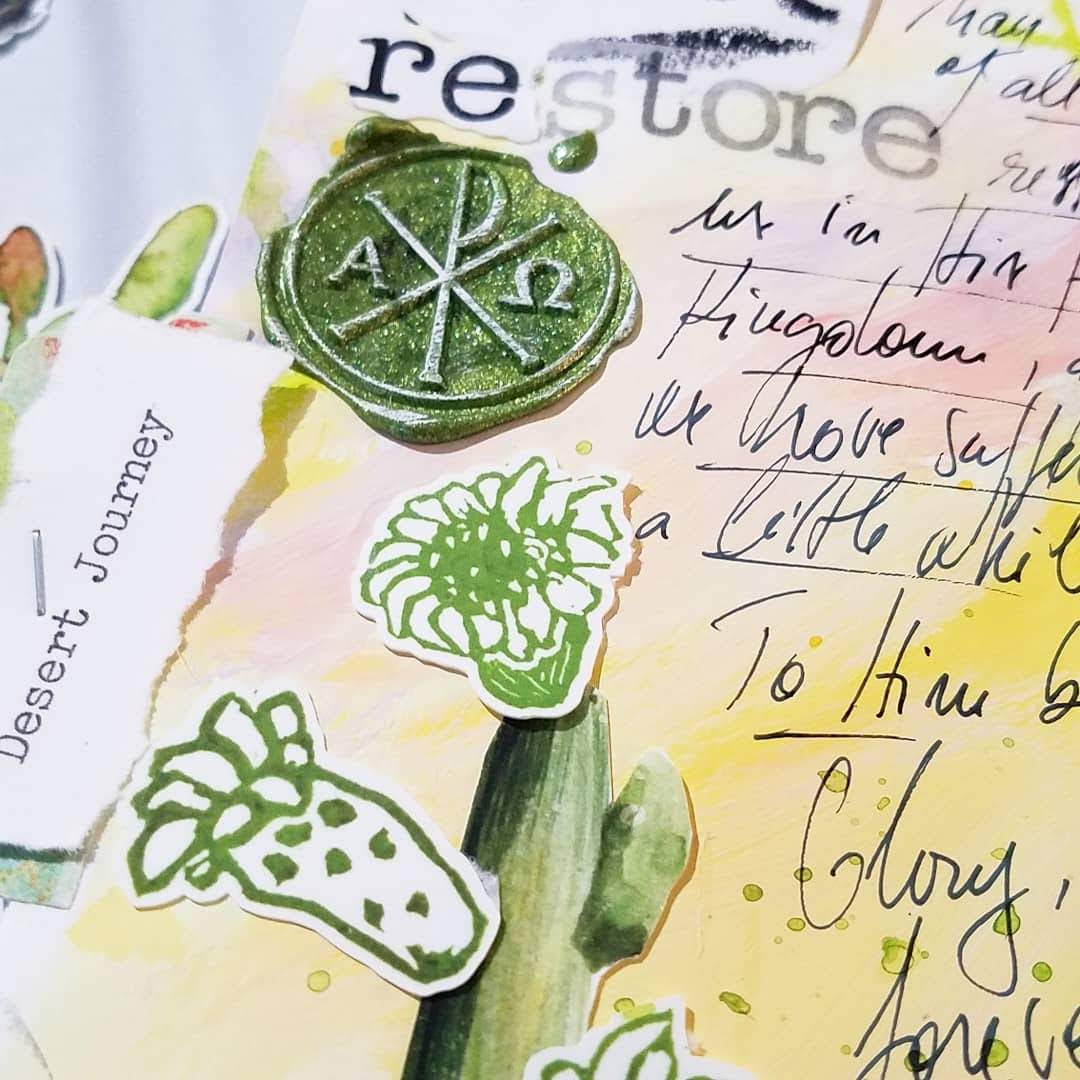 restore
May
of all
us in His
Kingdom,
we have suffe
a little whil
To Him b
Glory,
foreve
Α ☧ Ω
Desert Journey